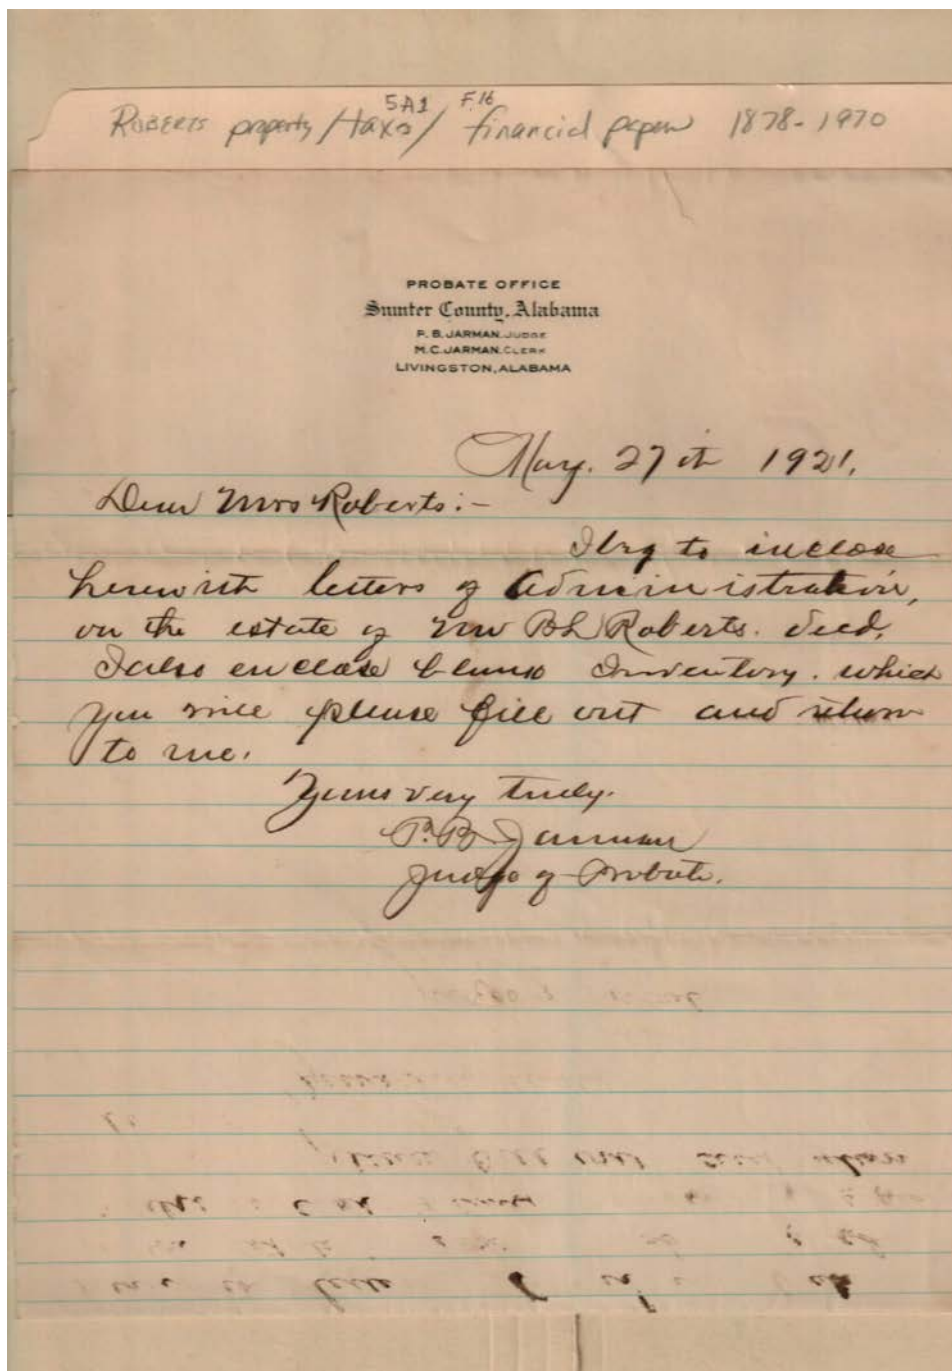 5A1 F.16
ROBERTS property/taxes/ financial papers 1878-1970
PROBATE OFFICE
Sumter County, Alabama
P. B. JARMAN, JUDGE
M. C. JARMAN, CLERK
LIVINGSTON, ALABAMA
May. 27th 1921.
Dear Mrs Roberts:-
I beg to inclose
herewith letters of administration,
on the estate of Mr B L Roberts. decd.
I also enclose blank Inventory. which
you will please fill out and return
to me.
Yours very truly.
P. B. Jarman
Judge of Probate.